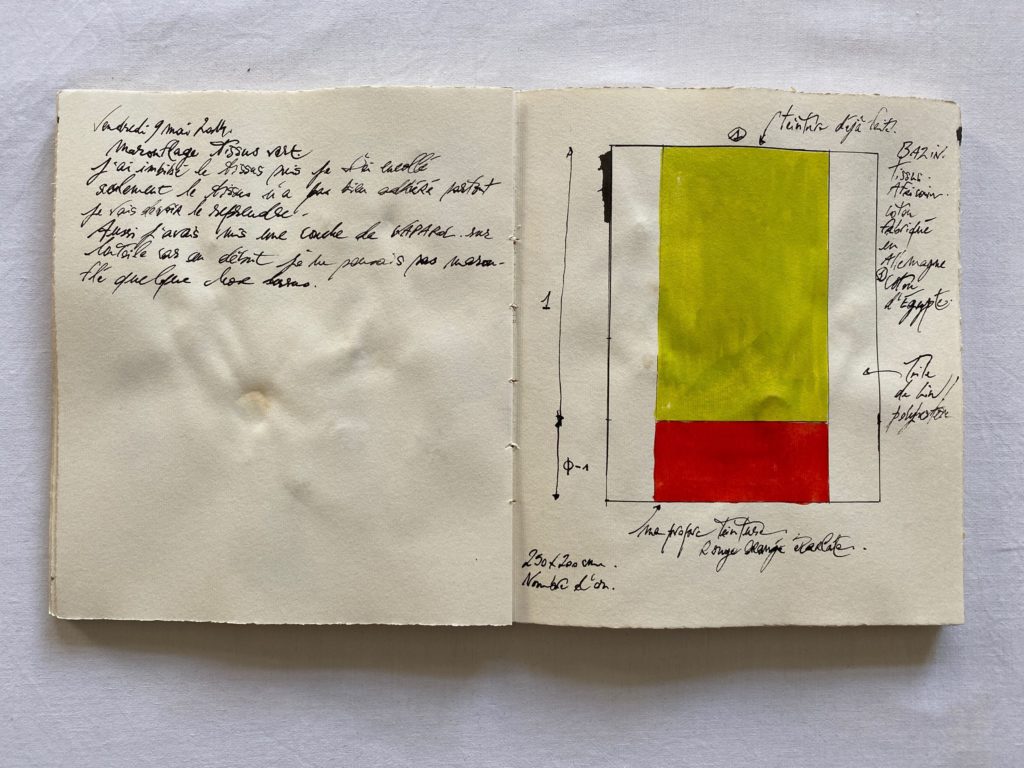 Vendredi 9 mai 2014.
Marouflage tissus vert
J'ai imbibé le tissus puis je l'ai encollé
seulement le tissus n'a pas bien adhéré partout
je vais devoir le reprendre.
Aussi j'avais mis une couche de GAPAROL sur
la toile car au début je ne pensais pas marou-
flé quelque chose dessus.
① teinture déjà faite.
BAZIN.
Tissus
Africain.
Coton
fabriqué
en
Allemagne
① Coton
d'Egypte.
1
Toile
de lin!
polyester
Φ-1
Ma propre teinture
Rouge orangé écarlate.
250 x 200 cm.
Nombre d'or.